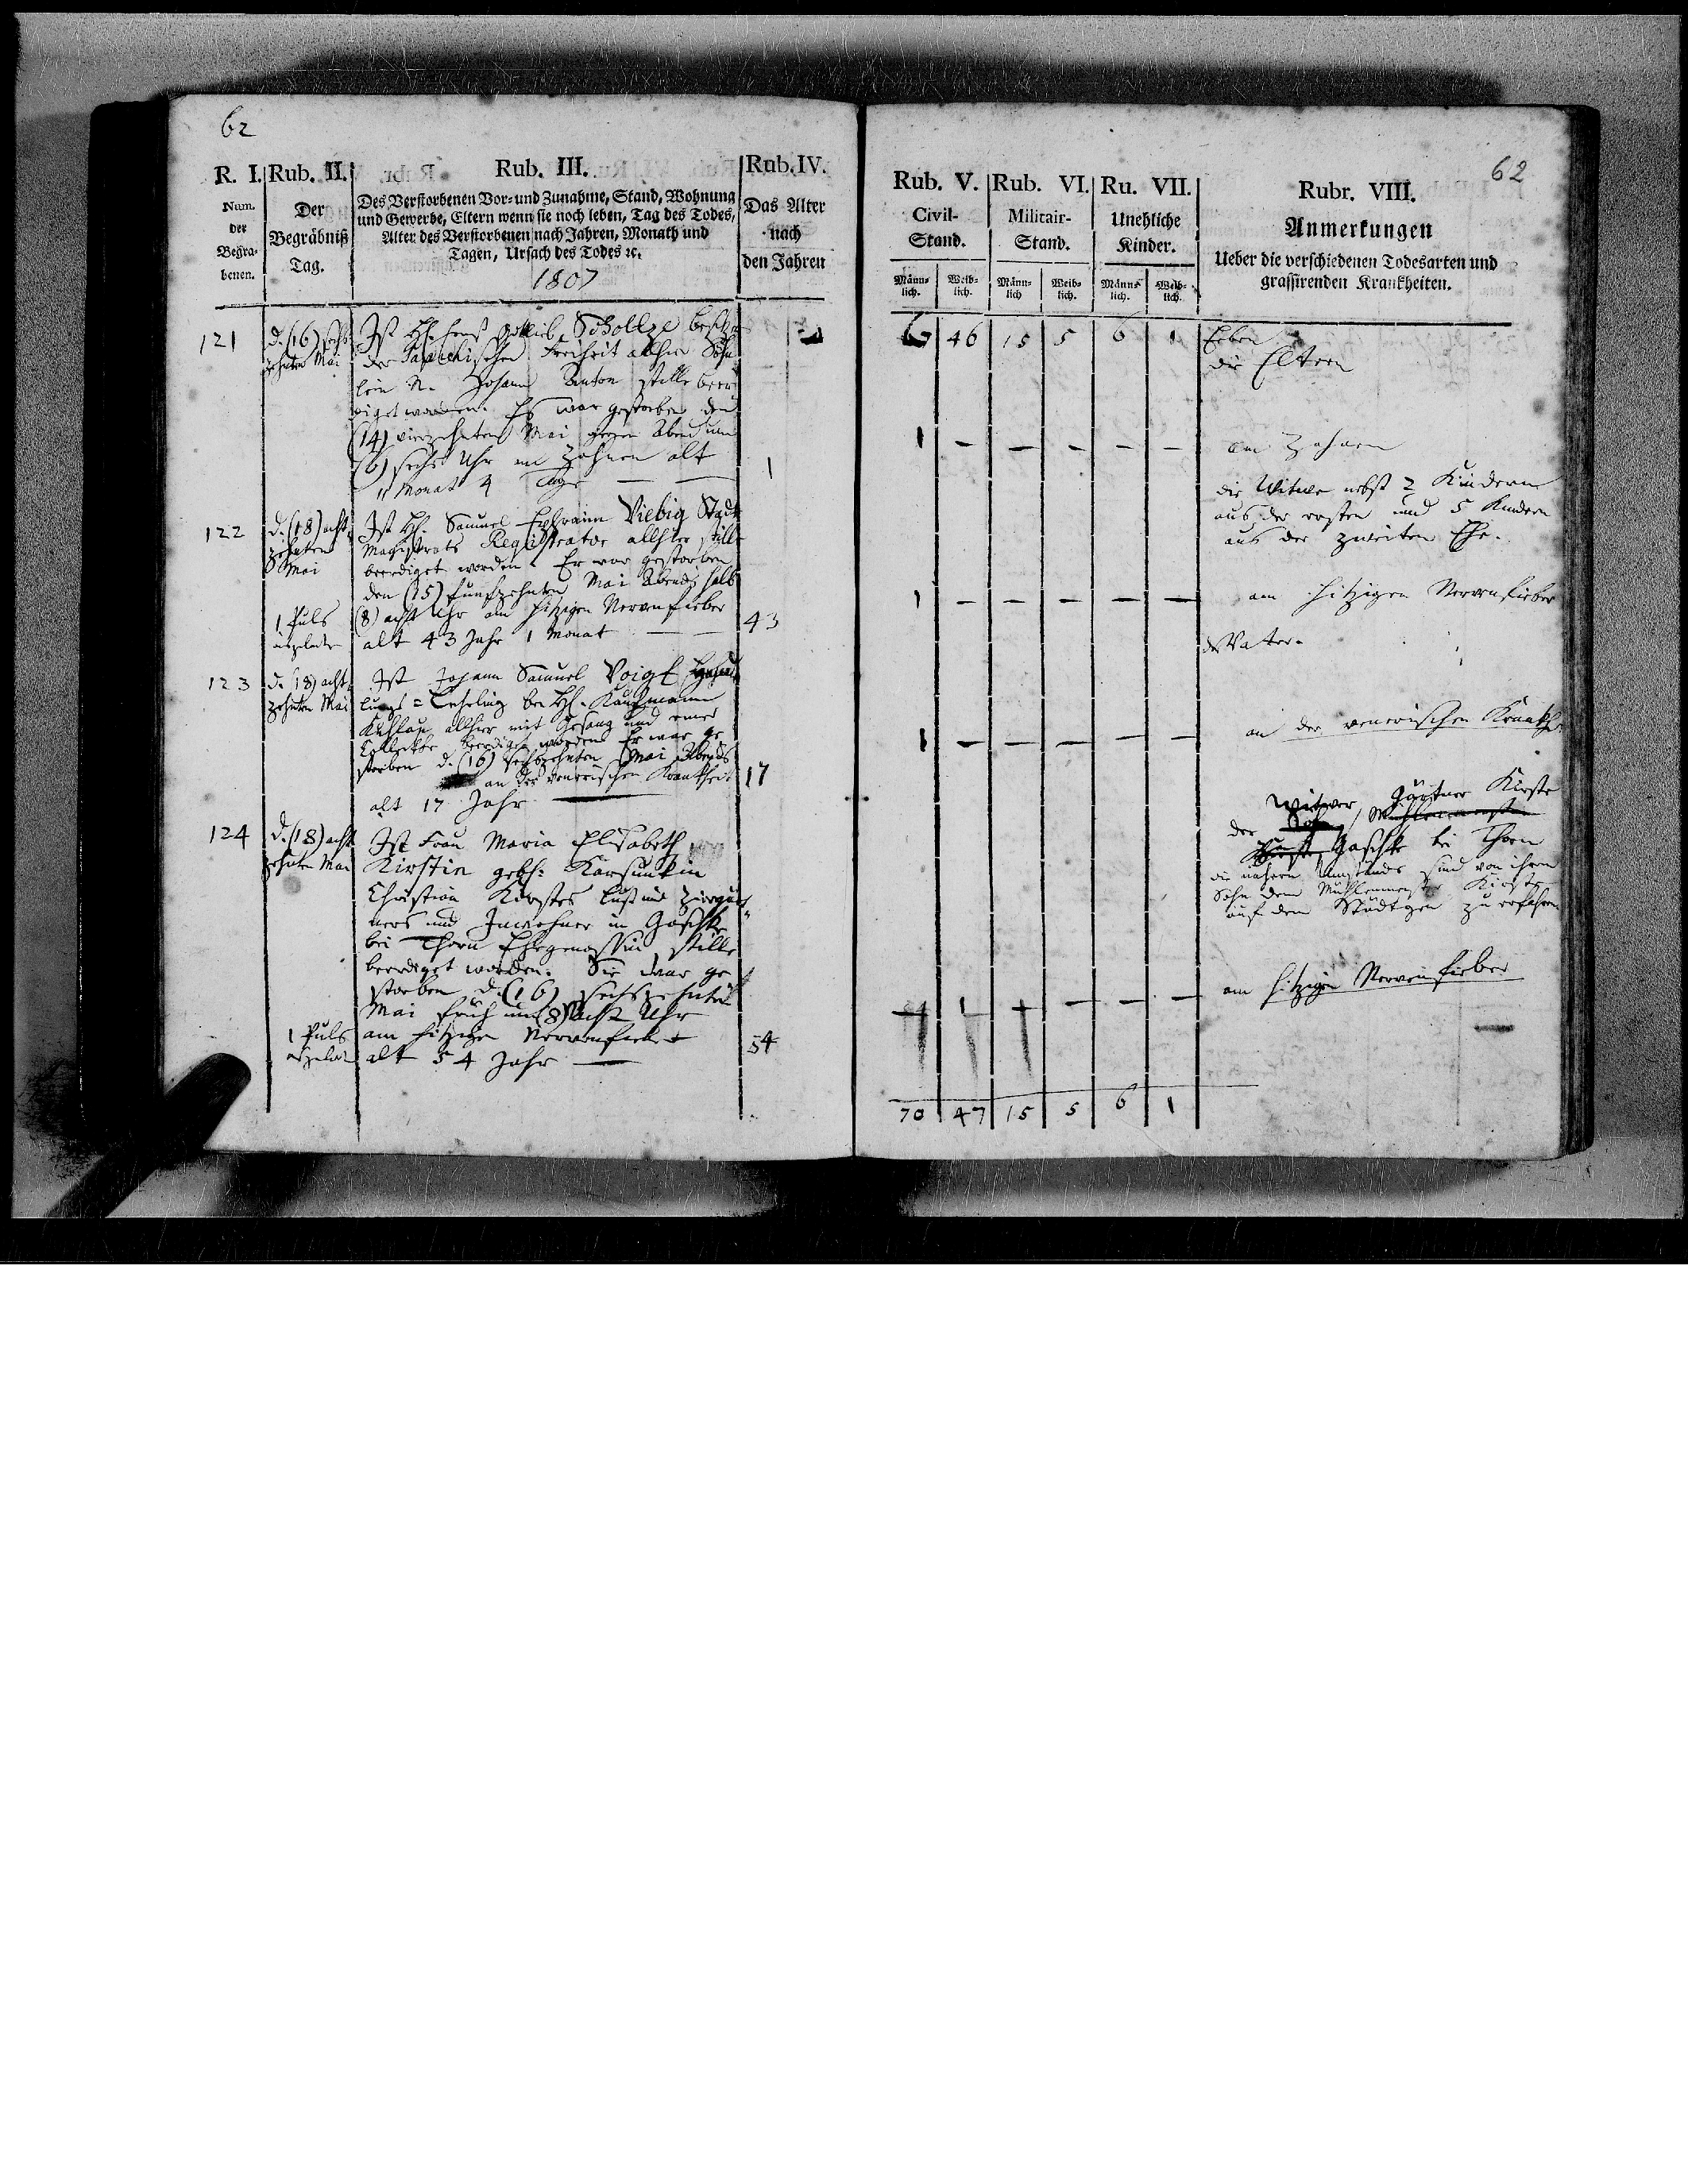 62
R. I.
Num.
der
Begra-
benen.
Rub. II.
Der
Begräbniß
Tag.
Rub. III.
Des Verstorbenen Vor- und Zunahme, Stand, Wohnung
und Gewerbe, Eltern wenn sie noch leben, Tag des Todes,
Alter des Verstorbenen nach Jahren, Monath und
Tagen, Ursach des Todes ꝛc.
1807
Rub. IV.
Das Alter
nach
den Jahren
121
d. (16) sechs
zehnten Mai
Ist H. Ernst Gottlieb Scholtze
der Freiheit allhier Söhn
lein N. Johann Anton stille beer
diget worden. Es war gestorben den
(14) vierzehnten Mai gegen Abend um
(6) sechs Uhr am Zahnen alt
11 Monat 4 Tage
1
122
d. (18) acht
zehnten
Mai
1 Puls
Ist H. Samuel Ephraim Viebig Stadt
Magistrats Registrator allhier stille
beerdiget worden. Er war gestorben
den (15) funfzehnten Mai Abends halb
(8) acht Uhr am hitzigen Nervenfieber
alt 43 Jahr 1 Monat
43
123
d. (18) acht
zehnten Mai
Ist Johann Samuel Voigt
lungs = Lehrling bei H. Kaufmann
allhier mit Gesang und einer
Collecte beerdiget worden Er war ge
storben d. (16) sechszehnten Mai Abends
an der venerischen Krankheit
alt 17 Jahr
17
124
d. (18) acht
zehnten Mai
1 Puls
Ist Frau Maria Elisabeth
Kirstin gebh: Karsunkin
Christian Kirstes Lust und Ziergärt
ners und Inwohner in Goschke
bei Thorn Ehegenossin stille
beerdiget worden. Sie war ge
storben d. (16) sechszehnten
Mai früh um (8) acht Uhr
am hitzigen Nervenfieber
alt 54 Jahr
54
62
Rub. V.
Civil-
Stand.
Männ-
lich.
Weib-
lich.
Rub. VI.
Militair-
Stand.
Männ-
lich
Weib-
lich.
Ru. VII.
Unehliche
Kinder.
Männ-
lich.
Weib-
lich.
Rubr. VIII.
Anmerkungen
Ueber die verschiedenen Todesarten und
grassirenden Krankheiten.
67 46 15 5 6 1
Erben
die Eltern
1 — — — — —
am Zahnen
die Witwe nebst 2 Kindern
aus der ersten und 5 Kindern
aus der zweiten Ehe.
1 — — — — —
am hitzigen Nervenfieber
d. Vater.
1 — — — — —
an der venerischen Krankh.
der Witwer, Gärtner Kirste
Goschke bei Thorn
die nähern Umstände sind von ihrem
Sohn dem Mühlenmeister Kirste
auf dem Städtgen zu erfahren
am hitzigen Nervenfieber
— 1 — — — —
70 47 15 5 6 1